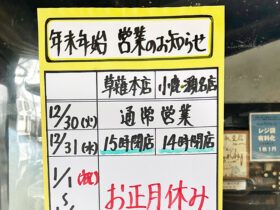 年末年始 営業のお知らせ
草薙本店 小鹿・瀬名店
12/30(火) 通常営業
12/31(水) 15時閉店 14時閉店
1/1(祝) お正月休み
レジ袋
有料化